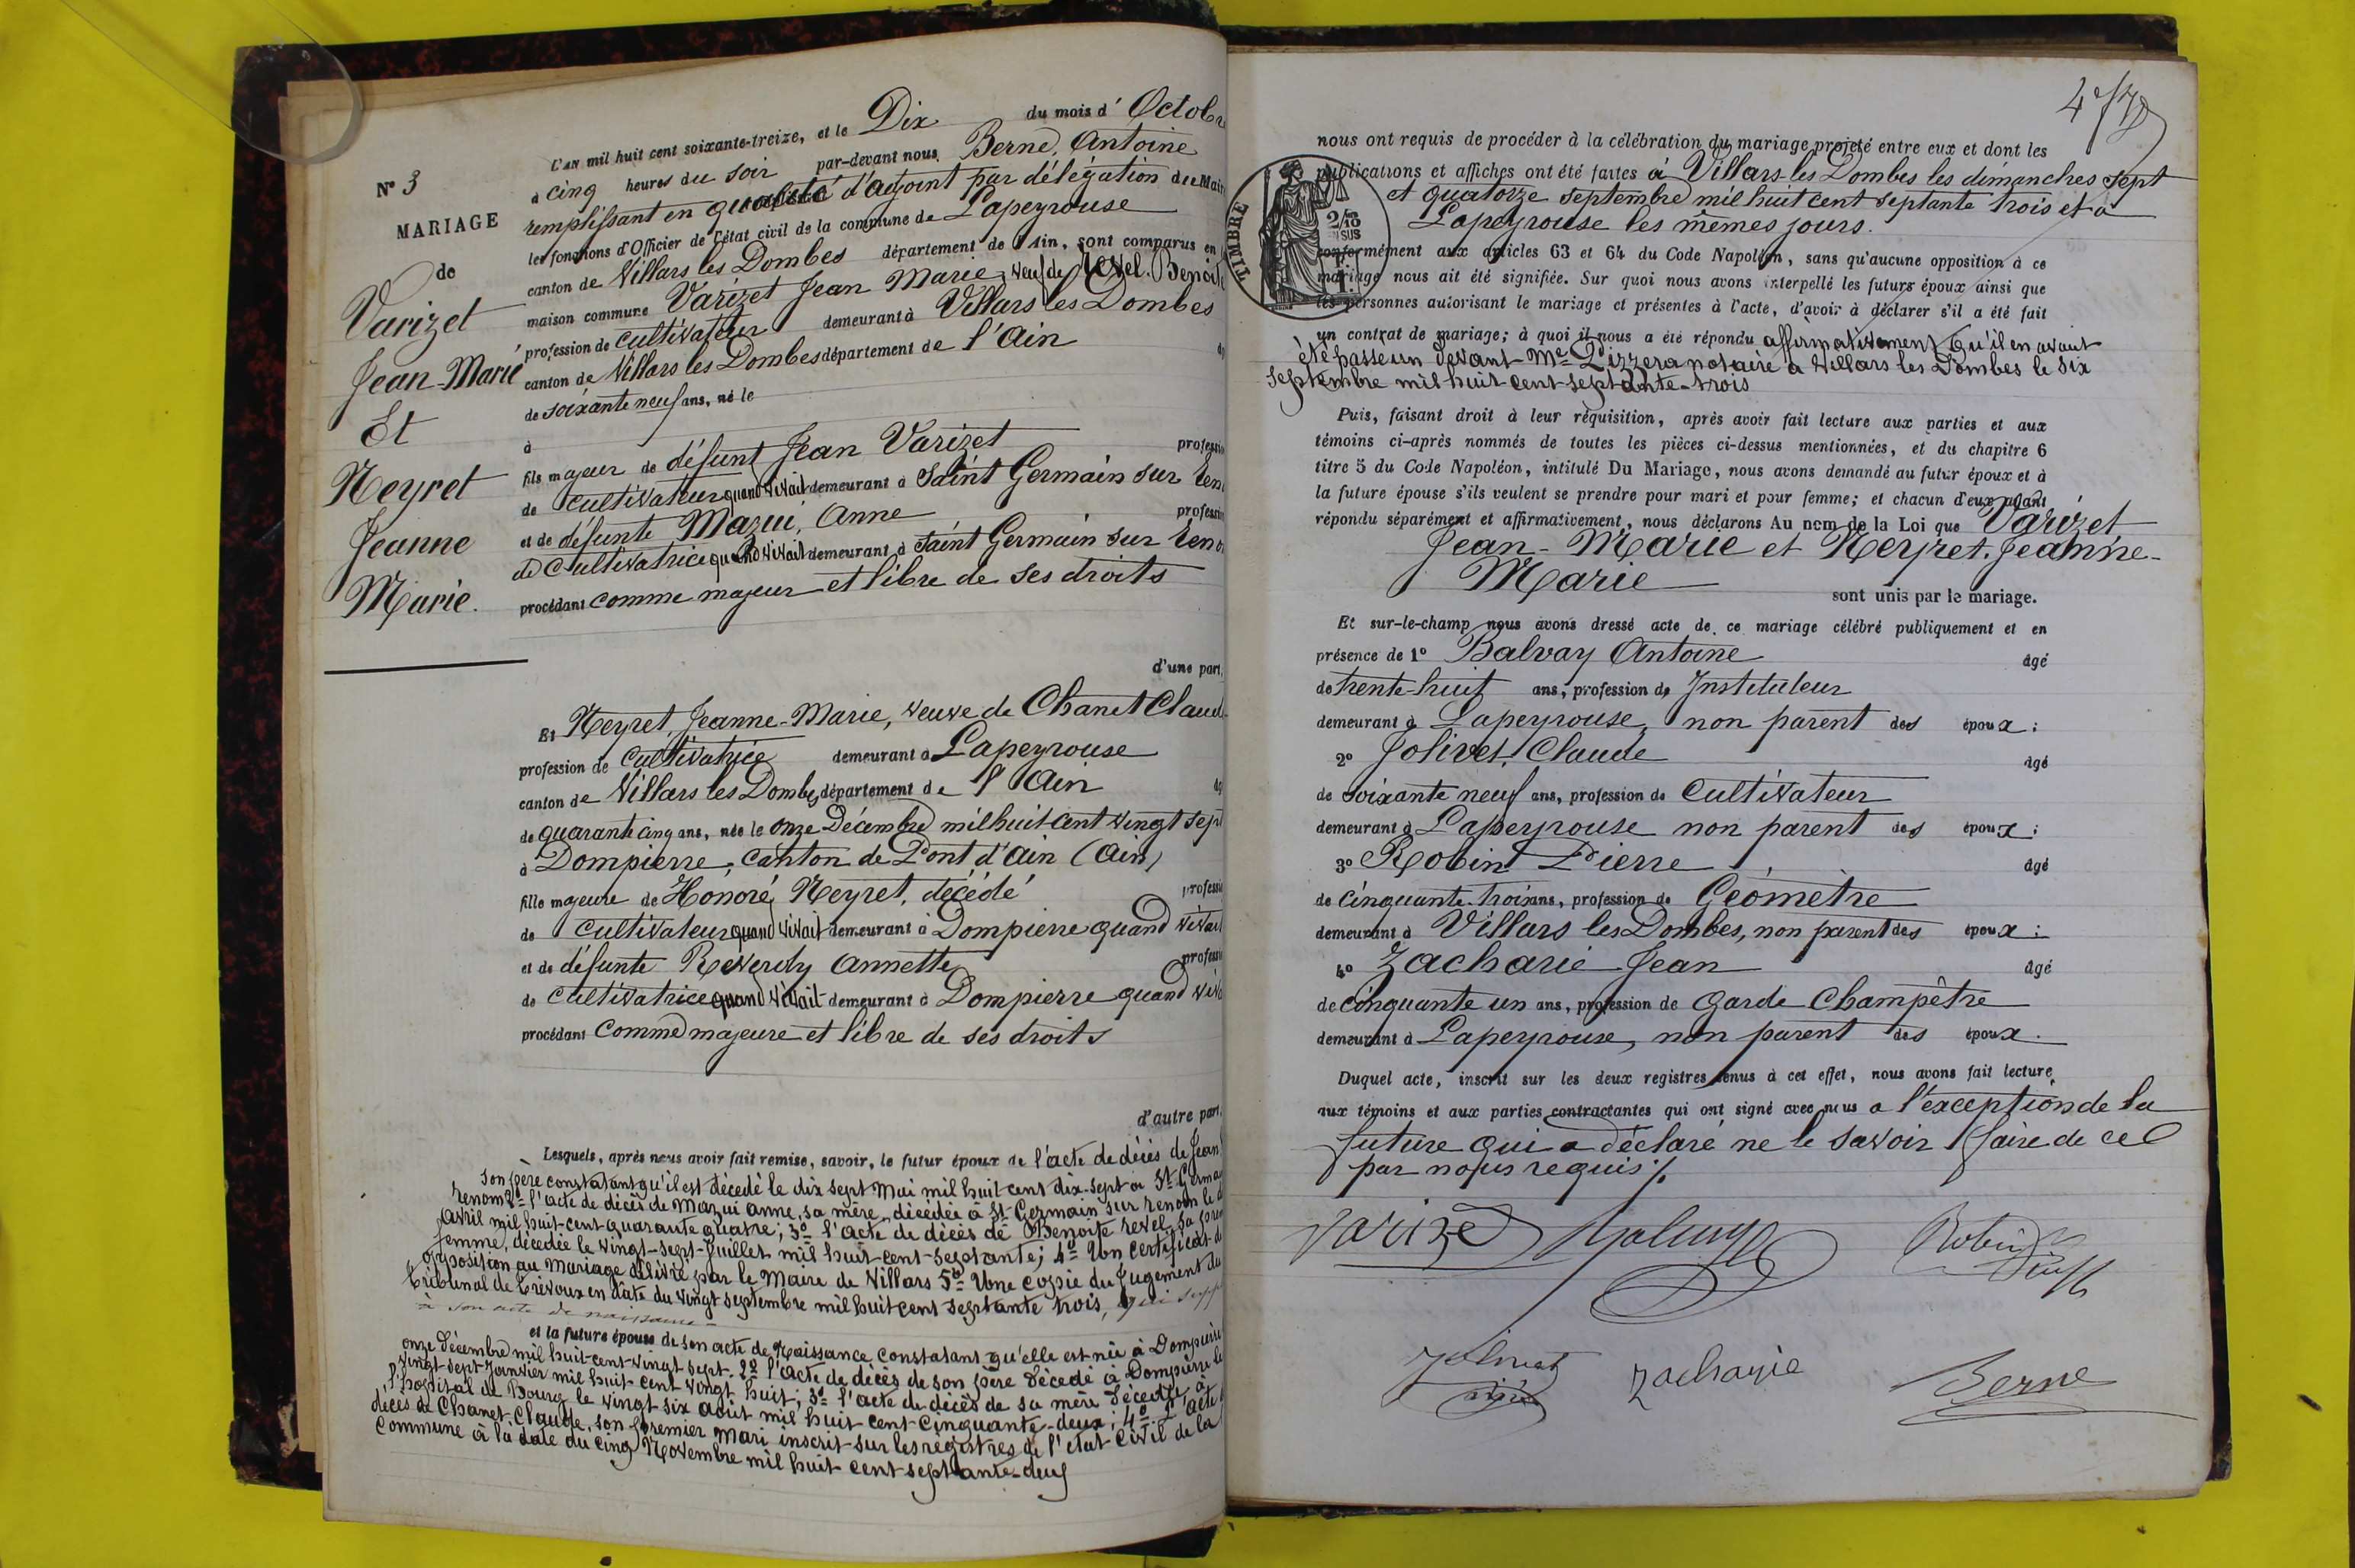 N° 3
MARIAGE
de
Varizet
Jean-Marie
Et
Neyret
Jeanne
Marie.
L'AN mil huit cent soixante-treize, et le Dix du mois d' Octobr
à cinq heures du soir par-devant nous Berne, Antoine
remplissant en qualité d'adjoint par délégation du Mair
les fonctions d'Officier de l'état civil de la commune de Lapeyrouse
canton de Villars les Dombes département de l'Ain, sont comparus en
maison commune Varizet Jean Marie, veuf de Revel. Benoit
profession de cultivateur demeurant à Villars les Dombes
canton de Villars les Dombes département de l'Ain
de soixante neuf ans, né le
à
fils majeur de défunt Jean Varizet professi
de cultivateur quand vivait demeurant à Saint Germain sur Ren
et de défunte Mazui, Anne professi
de Cultivatrice quand vivait demeurant à Saint Germain sur Reno
procédant comme majeur et libre de ses droits
d'une part,
Et Neyret, Jeanne-Marie, veuve de Chanet Claud
profession de cultivatrice demeurant à Lapeyrouse
canton de Villars les Dombes département de l'Ain
de quarante cinq ans, née le onze Décembre mil huit cent vingt sept
à Dompierre, canton de Pont d'Ain (Ain)
fille majeure de Honoré Neyret, décédé professi
de cultivateur quand vivait demeurant à Dompierre quand vivait
et de défunte Reverdy Annette professi
de cultivatrice quand vivait demeurant à Dompierre quand viva
procédant comme majeure et libre de ses droits
d'autre part,
Lesquels, après nous avoir fait remise, savoir, le futur époux de l'acte de décès de Jean
son père constatant qu'il est décédé le dix sept Mai mil huit cent dix-sept à St Germa
renom 2° l'acte de décès de Mazui anne, sa mère, décédée à St Germain sur renom le
avril mil huit-cent-quarante quatre; 3° l'acte de décès de Benoite revel, sa pre
femme, décédée le vingt-sept-Juillet mil huit-cent-septante; 4° Un certificat d
opposition au mariage délivré par le Maire de Villars 5° Une copie du Jugement du
tribunal de Trévoux en date du vingt septembre mil huit cent septante trois, qui supp
à son acte de naissance
et la future épouse de son acte de Naissance constatant qu'elle est née à Dompierre
onze Décembre mil huit-cent-vingt sept. 2° l'acte de décès de son père décédé à Dompierre le
vingt-sept Janvier mil huit-cent vingt huit; 3° l'acte de décès de sa mère décédée à
l'hopital de Bourg le vingt six août mil huit cent-cinquante-deux; 4° L'acte
décès de Chanet, Claude, son premier mari inscrit sur les registres de l'état civil de la
commune à la date du cinq Novembre mil huit cent septante-deux
nous ont requis de procéder à la célébration du mariage projeté entre eux et dont les
publications et affiches ont été faites à Villars-les Dombes les dimanches sept
et quatorze septembre mil huit cent septante trois et à
Lapeyrouse les mêmes jours.
TIMBRE
conformément aux articles 63 et 64 du Code Napoléon, sans qu'aucune opposition à ce
mariage nous ait été signifiée. Sur quoi nous avons interpellé les futurs époux ainsi que
les personnes autorisant le mariage et présentes à l'acte, d'avoir à déclarer s'il a été fait
un contrat de mariage; à quoi il nous a été répondu affirmativement qu'il en avait
été passé un devant Me Pizzera notaire à Villars les Dombes le six
septembre mil huit cent-septante-trois
Puis, faisant droit à leur réquisition, après avoir fait lecture aux parties et aux
témoins ci-après nommés de toutes les pièces ci-dessus mentionnées, et du chapitre 6
titre 5 du Code Napoléon, intitulé Du Mariage, nous avons demandé au futur époux et à
la future épouse s'ils veulent se prendre pour mari et pour femme; et chacun d'eux ayant
répondu séparément et affirmativement, nous déclarons Au nom de la Loi que Varizet
Jean-Marie et Neyret. Jeanne-
Marie
sont unis par le mariage.
Et sur-le-champ nous avons dressé acte de ce mariage célébré publiquement et en
présence de 1° Balvay Antoine âgé
de trente-huit ans, profession de Instituteur
demeurant à Lapeyrouse, non parent des époux;
2° Jolivet, Claude âgé
de soixante neuf ans, profession de cultivateur
demeurant à Lapeyrouse non parent des époux;
3° Robin Pierre âgé
de cinquante-trois ans, profession de Géomètre
demeurant à Villars les Dombes, non parent des époux;
4° Zacharie Jean âgé
de cinquante un ans, profession de garde Champêtre
demeurant à Lapeyrouse, non parent des époux.
Duquel acte, inscrit sur les deux registres tenus à cet effet, nous avons fait lecture
aux témoins et aux parties contractantes qui ont signé avec nous à l'exception de la
future qui a déclaré ne le savoir faire de ce
par nous requis
varizet Balvay Robin
Jolivet Zacharie Berne